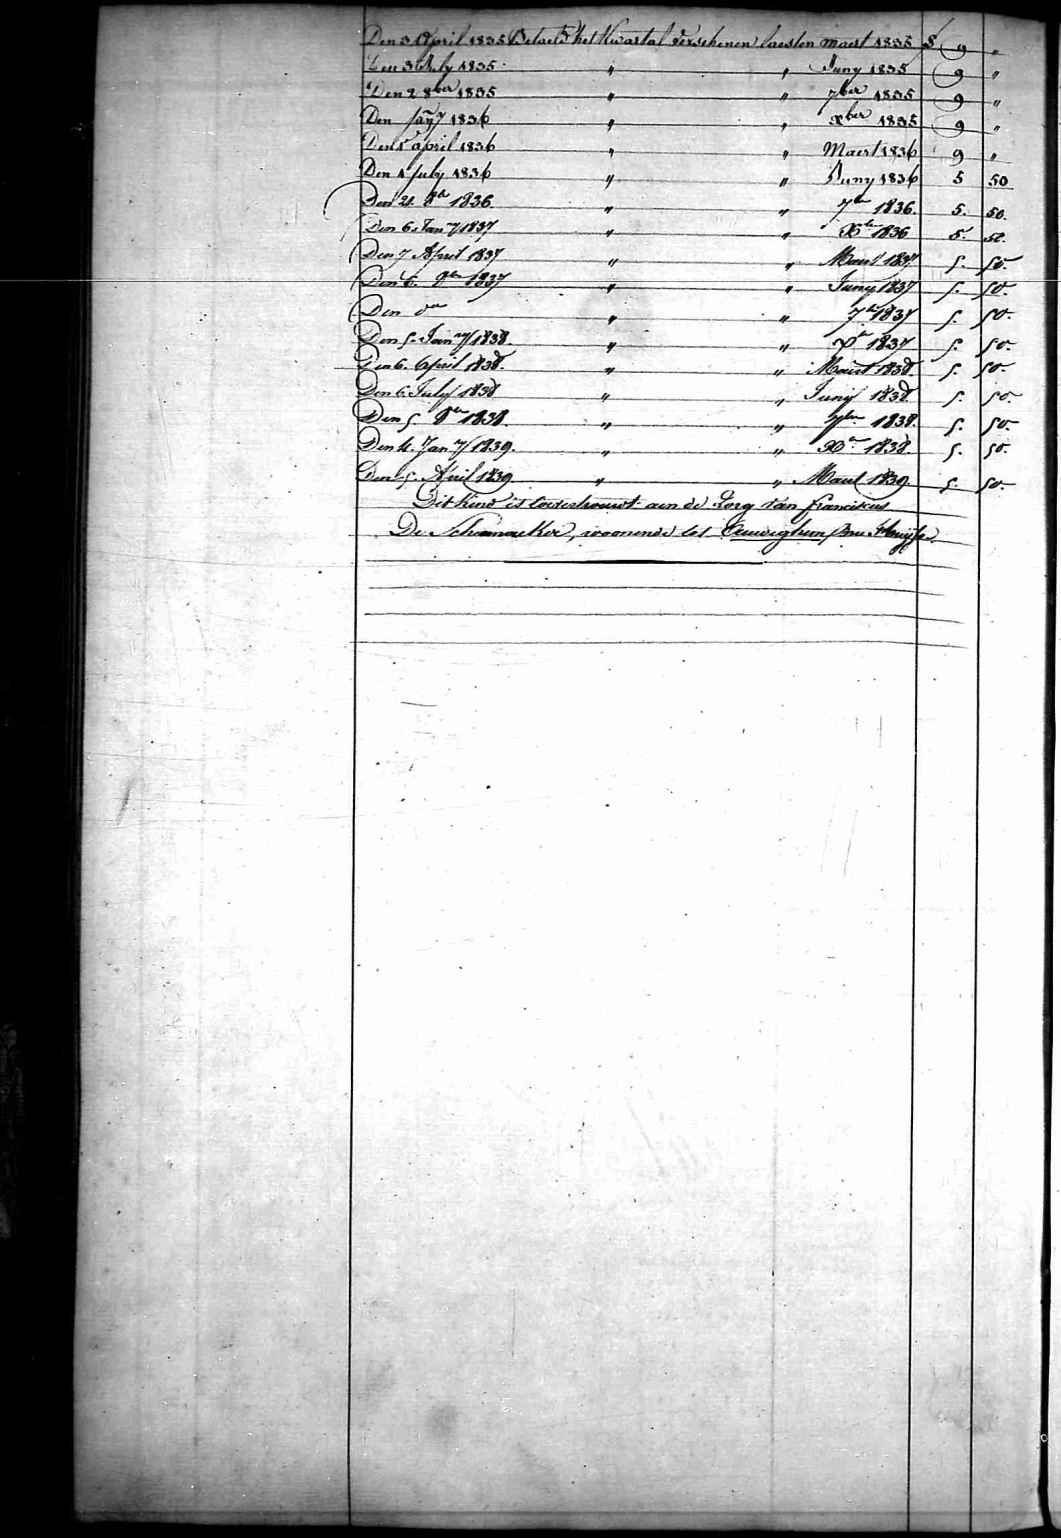 Den 3 April 1835 Betaeld het Kwartal verschenen laesten maert 1835 f 9 "
Den 3 July 1835 " " Juny 1835 9 "
Den 2 8ber 1835 " " 7ber 1835 9 "
Den Jany 1836 " " Xber 1835 9 "
Den 1 april 1836 " " Maert 1836 9 "
Den 1 July 1836 " " Juny 1836 5 50
Den 4. 8br 1836. " " 7br 1836. 5. 50.
Den 6. Jany 1837 " " Xbr 1836 5. 50.
Den 7 April 1837 " " Maert 1837 5. 50.
Den 6. 8br 1837 " " Juny 1837 5. 50.
Den do " " 7br 1837 5. 50.
Den 5. Jany 1838. " " Xbr 1837 5. 50.
Den 6. April 1838. " " Maert 1838. 5. 50.
Den 6. July 1838 " " Juny 1838. 5. 50.
Den 5 8br 1838. " " 7bre 1838. 5. 50.
Den 4. Jany 1839. " " Xbr 1838. 5. 50.
Den 5. April 1839 " " Maert 1839. 5. 50.
Dit kind is toevertrouwt aen de Zorg van franciscus
De Schoonmaeker, woonende tot